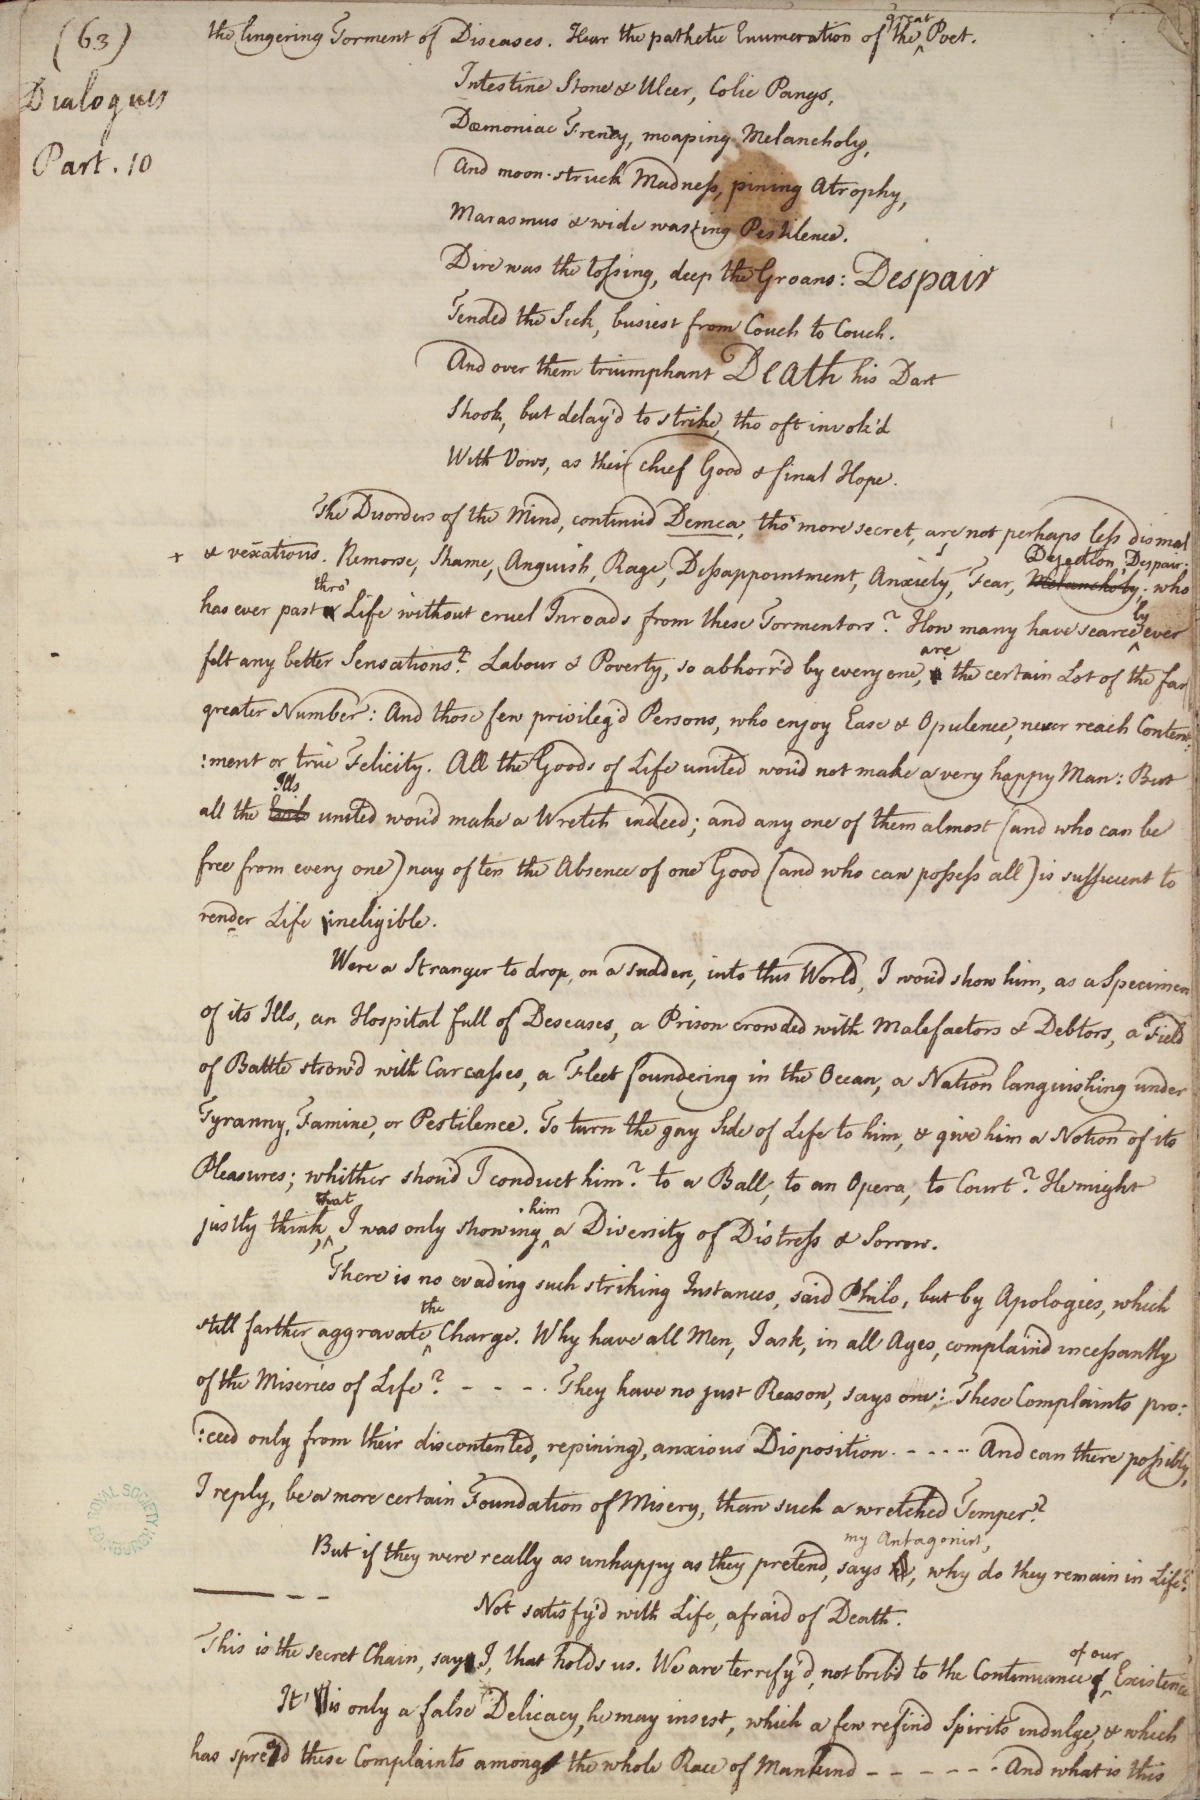 (63)
Dialogues
Part. 10
the lingering Torment of Diseases. Hear the pathetic Enumeration of the great Poet.
Intestine Stone & Ulcer, Colic Pangs,
Dæmoniac Frenzy, moaping Melancholy,
And moon-struck Madness, pining Atrophy,
Marasmus & wide wasting Pestilence.
Dire was the tossing, deep the Groans: Despair
Tended the Sick, busiest from Couch to Couch.
And over them triumphant Death his Dart
Shook, but delay'd to strike, tho oft invok'd
With Vows, as their chief Good & final Hope.
The Disorders of the Mind, continu'd Demea, tho' more secret, are not perhaps less dismal
+ & vexatious. Remorse, Shame, Anguish, Rage, Dissappointment, Anxiety, Fear, Melancholy, Dejection, Despair: who
has ever past thro' Life without cruel Inroads from these Tormentors? How many have scarcely ever
felt any better Sensations? Labour & Poverty, so abhorr'd by every one, are the certain Lot of the far
greater Number: And those few privileg'd Persons, who enjoy Ease & Opulence, never reach Content:
:ment or true Felicity. All the Goods of Life united wou'd not make a very happy Man: But
all the Evils Ills united wou'd make a Wretch indeed; and any one of them almost (and who can be
free from every one) nay often the Absence of one Good (and who can possess all) is sufficient to
render Life ineligible.
Were a Stranger to drop, on a sudden, into this World, I wou'd show him, as a Specimen
of its Ills, an Hospital full of Deseases, a Prison crowded with Malefactors & Debtors, a Field
of Battle strow'd with Carcasses, a Fleet foundering in the Ocean, a Nation languishing under
Tyranny, Famine, or Pestilence. To turn the gay Side of Life to him, & give him a Notion of its
Pleasures; whither shou'd I conduct him? to a Ball, to an Opera, to Court? He might
justly think, that I was only showing him a Diversity of Distress & Sorrow.
There is no evading such striking Instances, said Philo, but by Apologies, which
still farther aggravate the Charge. Why have all Men, I ask, in all Ages, complain'd incessantly
of the Miseries of Life? - - - . They have no just Reason, says one: These Complaints pro:
:ceed only from their discontented, repining, anxious Disposition. - - - - And can there possibly,
I reply, be a more certain Foundation of Misery, than such a wretched Temper?
But if they were really as unhappy as they pretend, says my Antagonist, why do they remain in Life?
Not satisfy'd with Life, afraid of Death.
This is the secret Chain, say I, that holds us. We are terrify'd, not brib'd to the Continuance of our Existence
It is only a false Delicacy, he may insist, which a few refin'd Spirits indulge, & which
has spread these Complaints among the whole Race of Mankind - - - - - - And what is this
ROYAL SOCIETY EDINBURGH